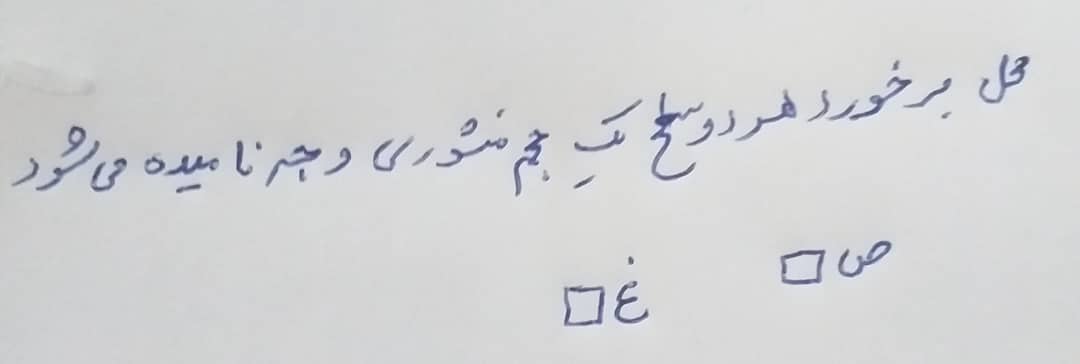 محل برخورد هر دو سطح یک حجم منشوری وجه نامیده می‌شود
ص □
غ □